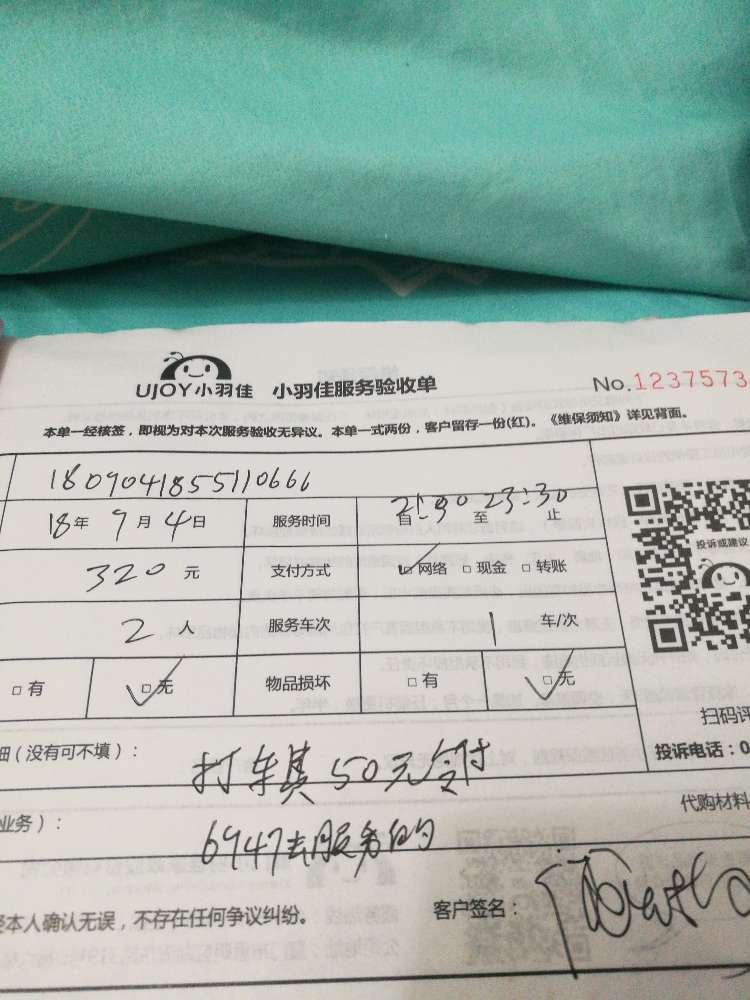 UJOY小羽佳 小羽佳服务验收单 No.1237573
本单一经核签，即视为对本次服务验收无异议。本单一式两份，客户留存一份(红)。《维保须知》详见背面。
1809041855110666
18年9月4日 服务时间 自21:30至23:30止
320元 支付方式 □网络 □现金 □转账
2人 服务车次 1车/次
□有 □无 物品损坏 □有 □无
投诉或建议
扫码评
细（没有可不填）： 打车费50元支付 投诉电话：0
业务）： 6947去服务的 代购材料
经本人确认无误，不存在任何争议纠纷。 客户签名：